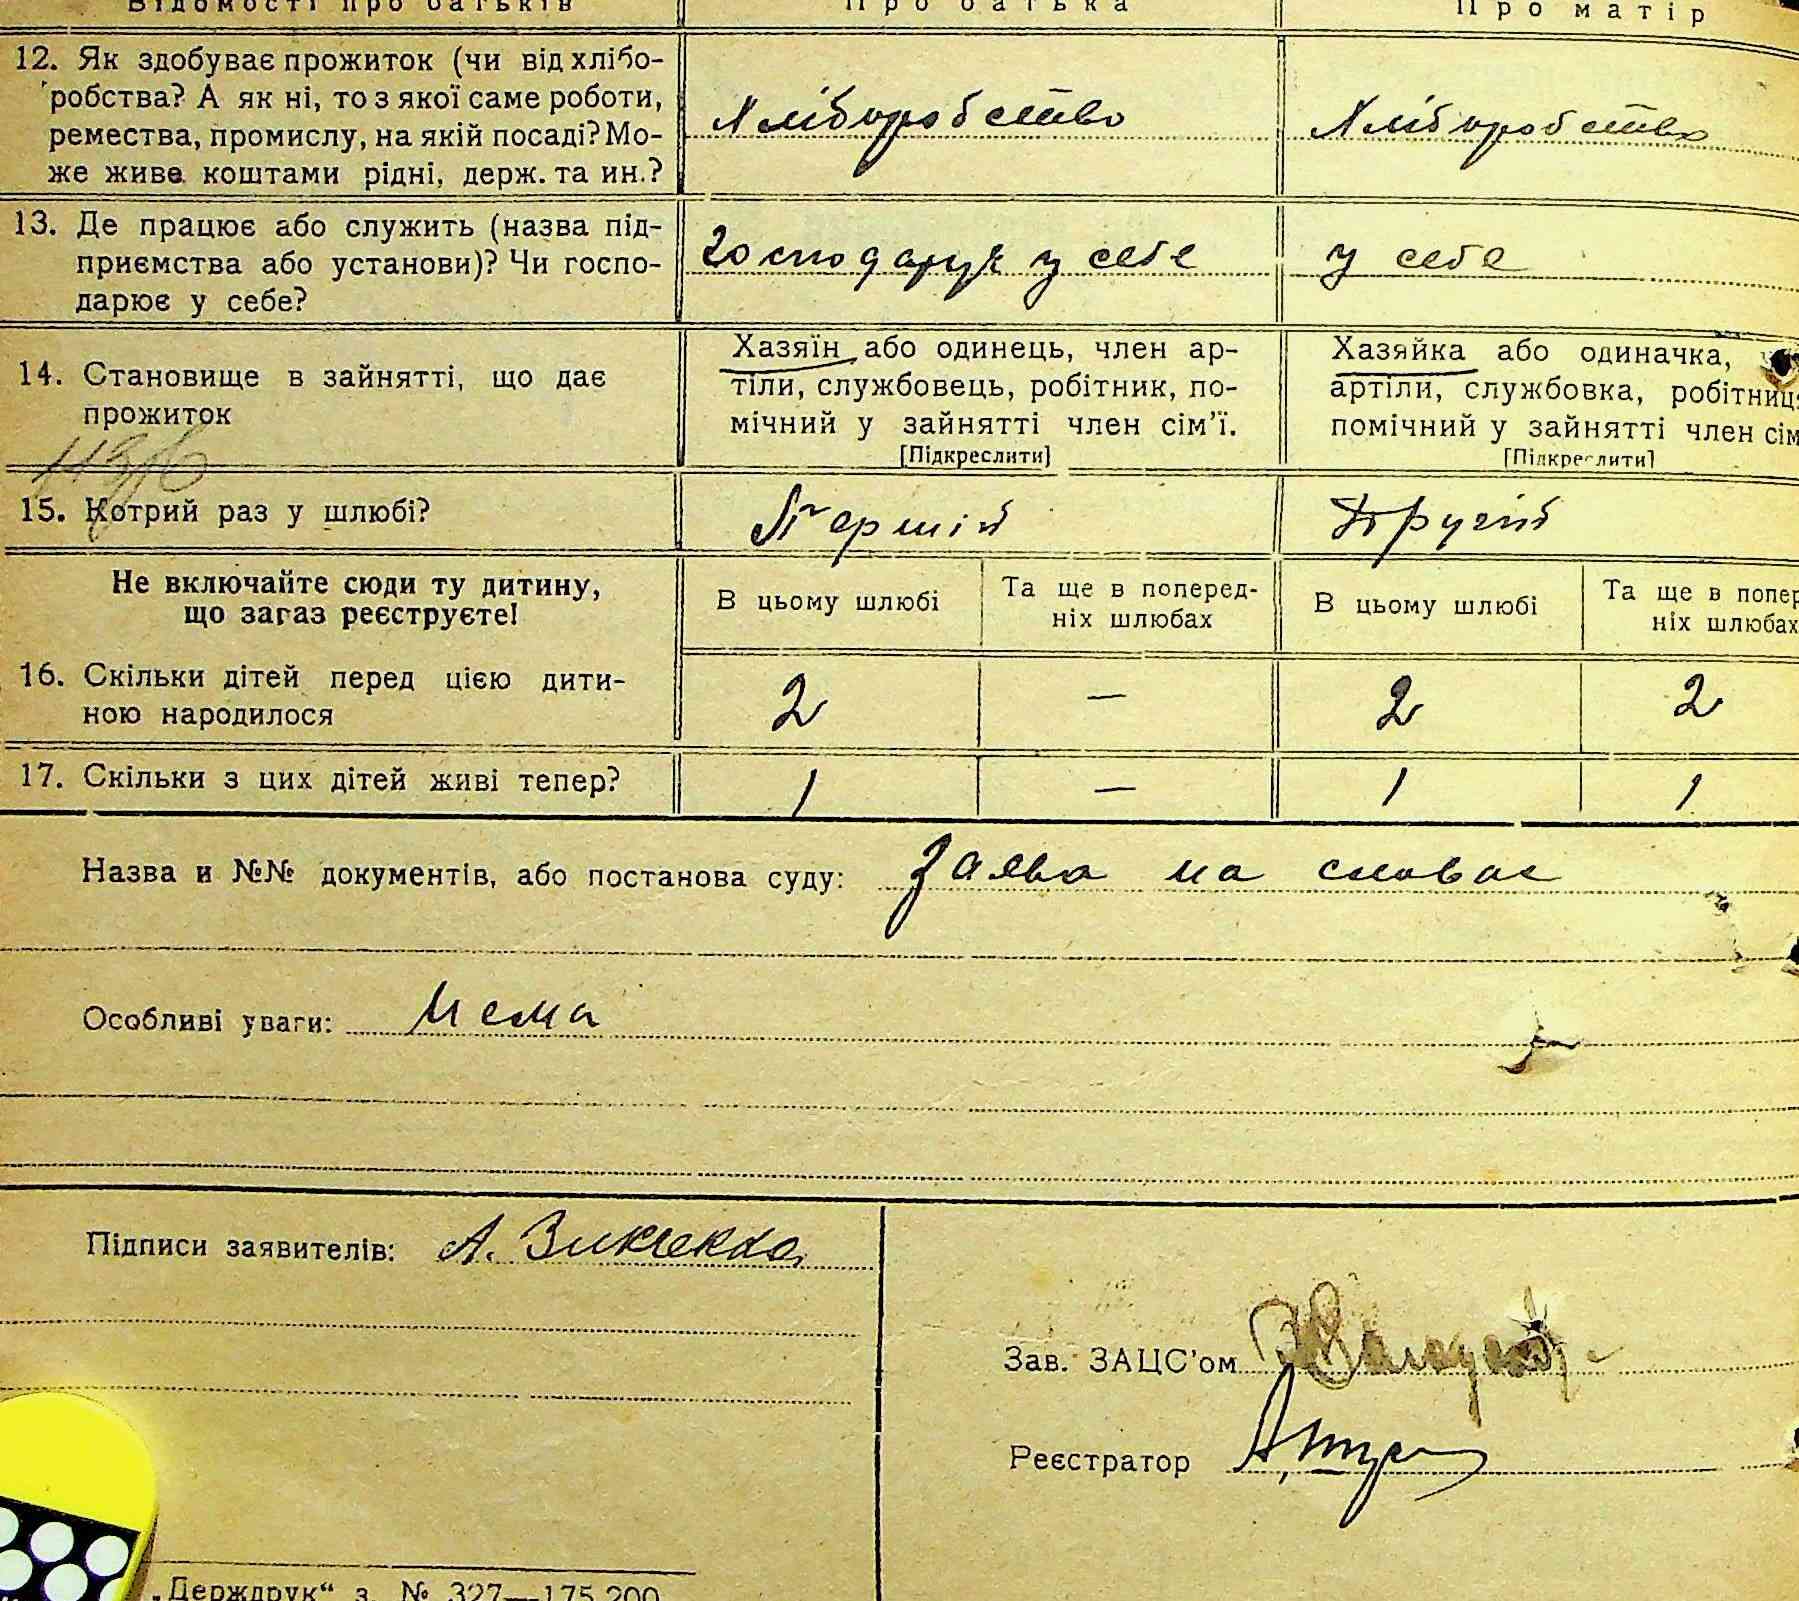 Відомості про батьків Про батька Про матір
12. Як здобуває прожиток (чи від хлібо-
робства? А як ні, то з якої саме роботи,
ремества, промислу, на якій посаді? Мо-
же живе коштами рідні, держ. та ин.?
Хліборобство
Хліборобство
13. Де працює або служить (назва під-
приємства або установи)? Чи госпо-
дарює у себе?
Господарує у себе
у себе
14. Становище в зайнятті, що дає
прожиток
Хазяїн або одинець, член ар-
тіли, службовець, робітник, по-
мічний у зайнятті член сім'ї.
[Підкреслити]
Хазяйка або одиначка,
артіли, службовка, робітниц
помічний у зайнятті член сім
[Підкреслити]
15. Котрий раз у шлюбі?
Першій
Другій
Не включайте сюди ту дитину,
що зараз реєструєте!
В цьому шлюбі
Та ще в поперед-
ніх шлюбах
В цьому шлюбі
Та ще в попер
ніх шлюбах
16. Скільки дітей перед цією дити-
ною народилося
2 — 2 2
17. Скільки з цих дітей живі тепер? 1 — 1 1
Назва и №№ документів, або постанова суду: Заява на словах
Особливі уваги: Нема
Підписи заявителів: А.
Зав. ЗАЦС'ом
Реєстратор
„Держдрук“ з. № 327—175.200